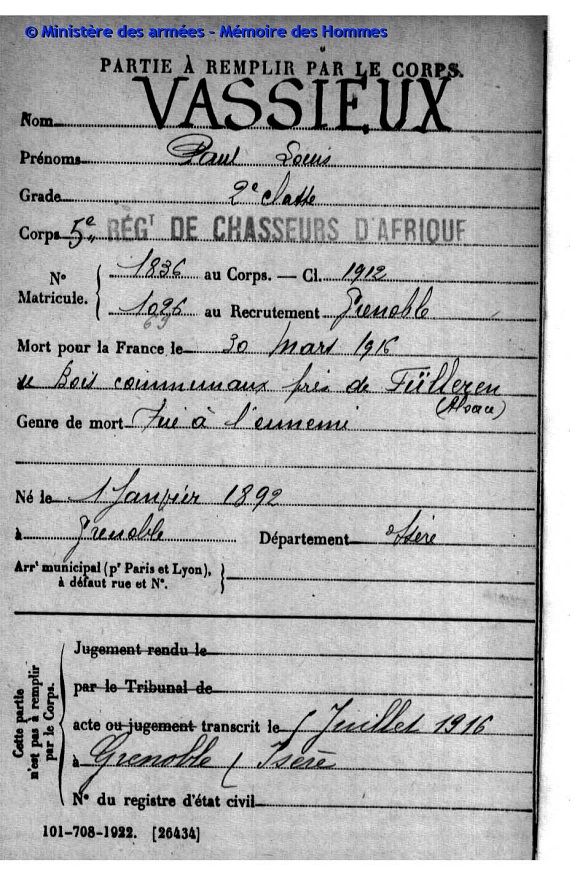 © Ministère des armées - Mémoire des Hommes
PARTIE À REMPLIR PAR LE CORPS.
Nom VASSIEUX
Prénoms Paul Louis
Grade 2e classe
Corps 5e RÉGT DE CHASSEURS D'AFRIQUE
No Matricule. { 1836 au Corps. — Cl. 1912
1026 au Recrutement Grenoble
Mort pour la France le 30 Mars 1916
Bois communaux près de Fülleren
(Alsace)
Genre de mort Tué à l'ennemi
Né le 1 Janvier 1892
à Grenoble Département Isère
Arrt municipal (pr Paris et Lyon),
à défaut rue et No. }
Cette partie
n'est pas à remplir
par le Corps.
Jugement rendu le
par le Tribunal de
acte ou jugement transcrit le Juillet 1916
à Grenoble (Isère
No du registre d'état civil
101-708-1922. [26434]